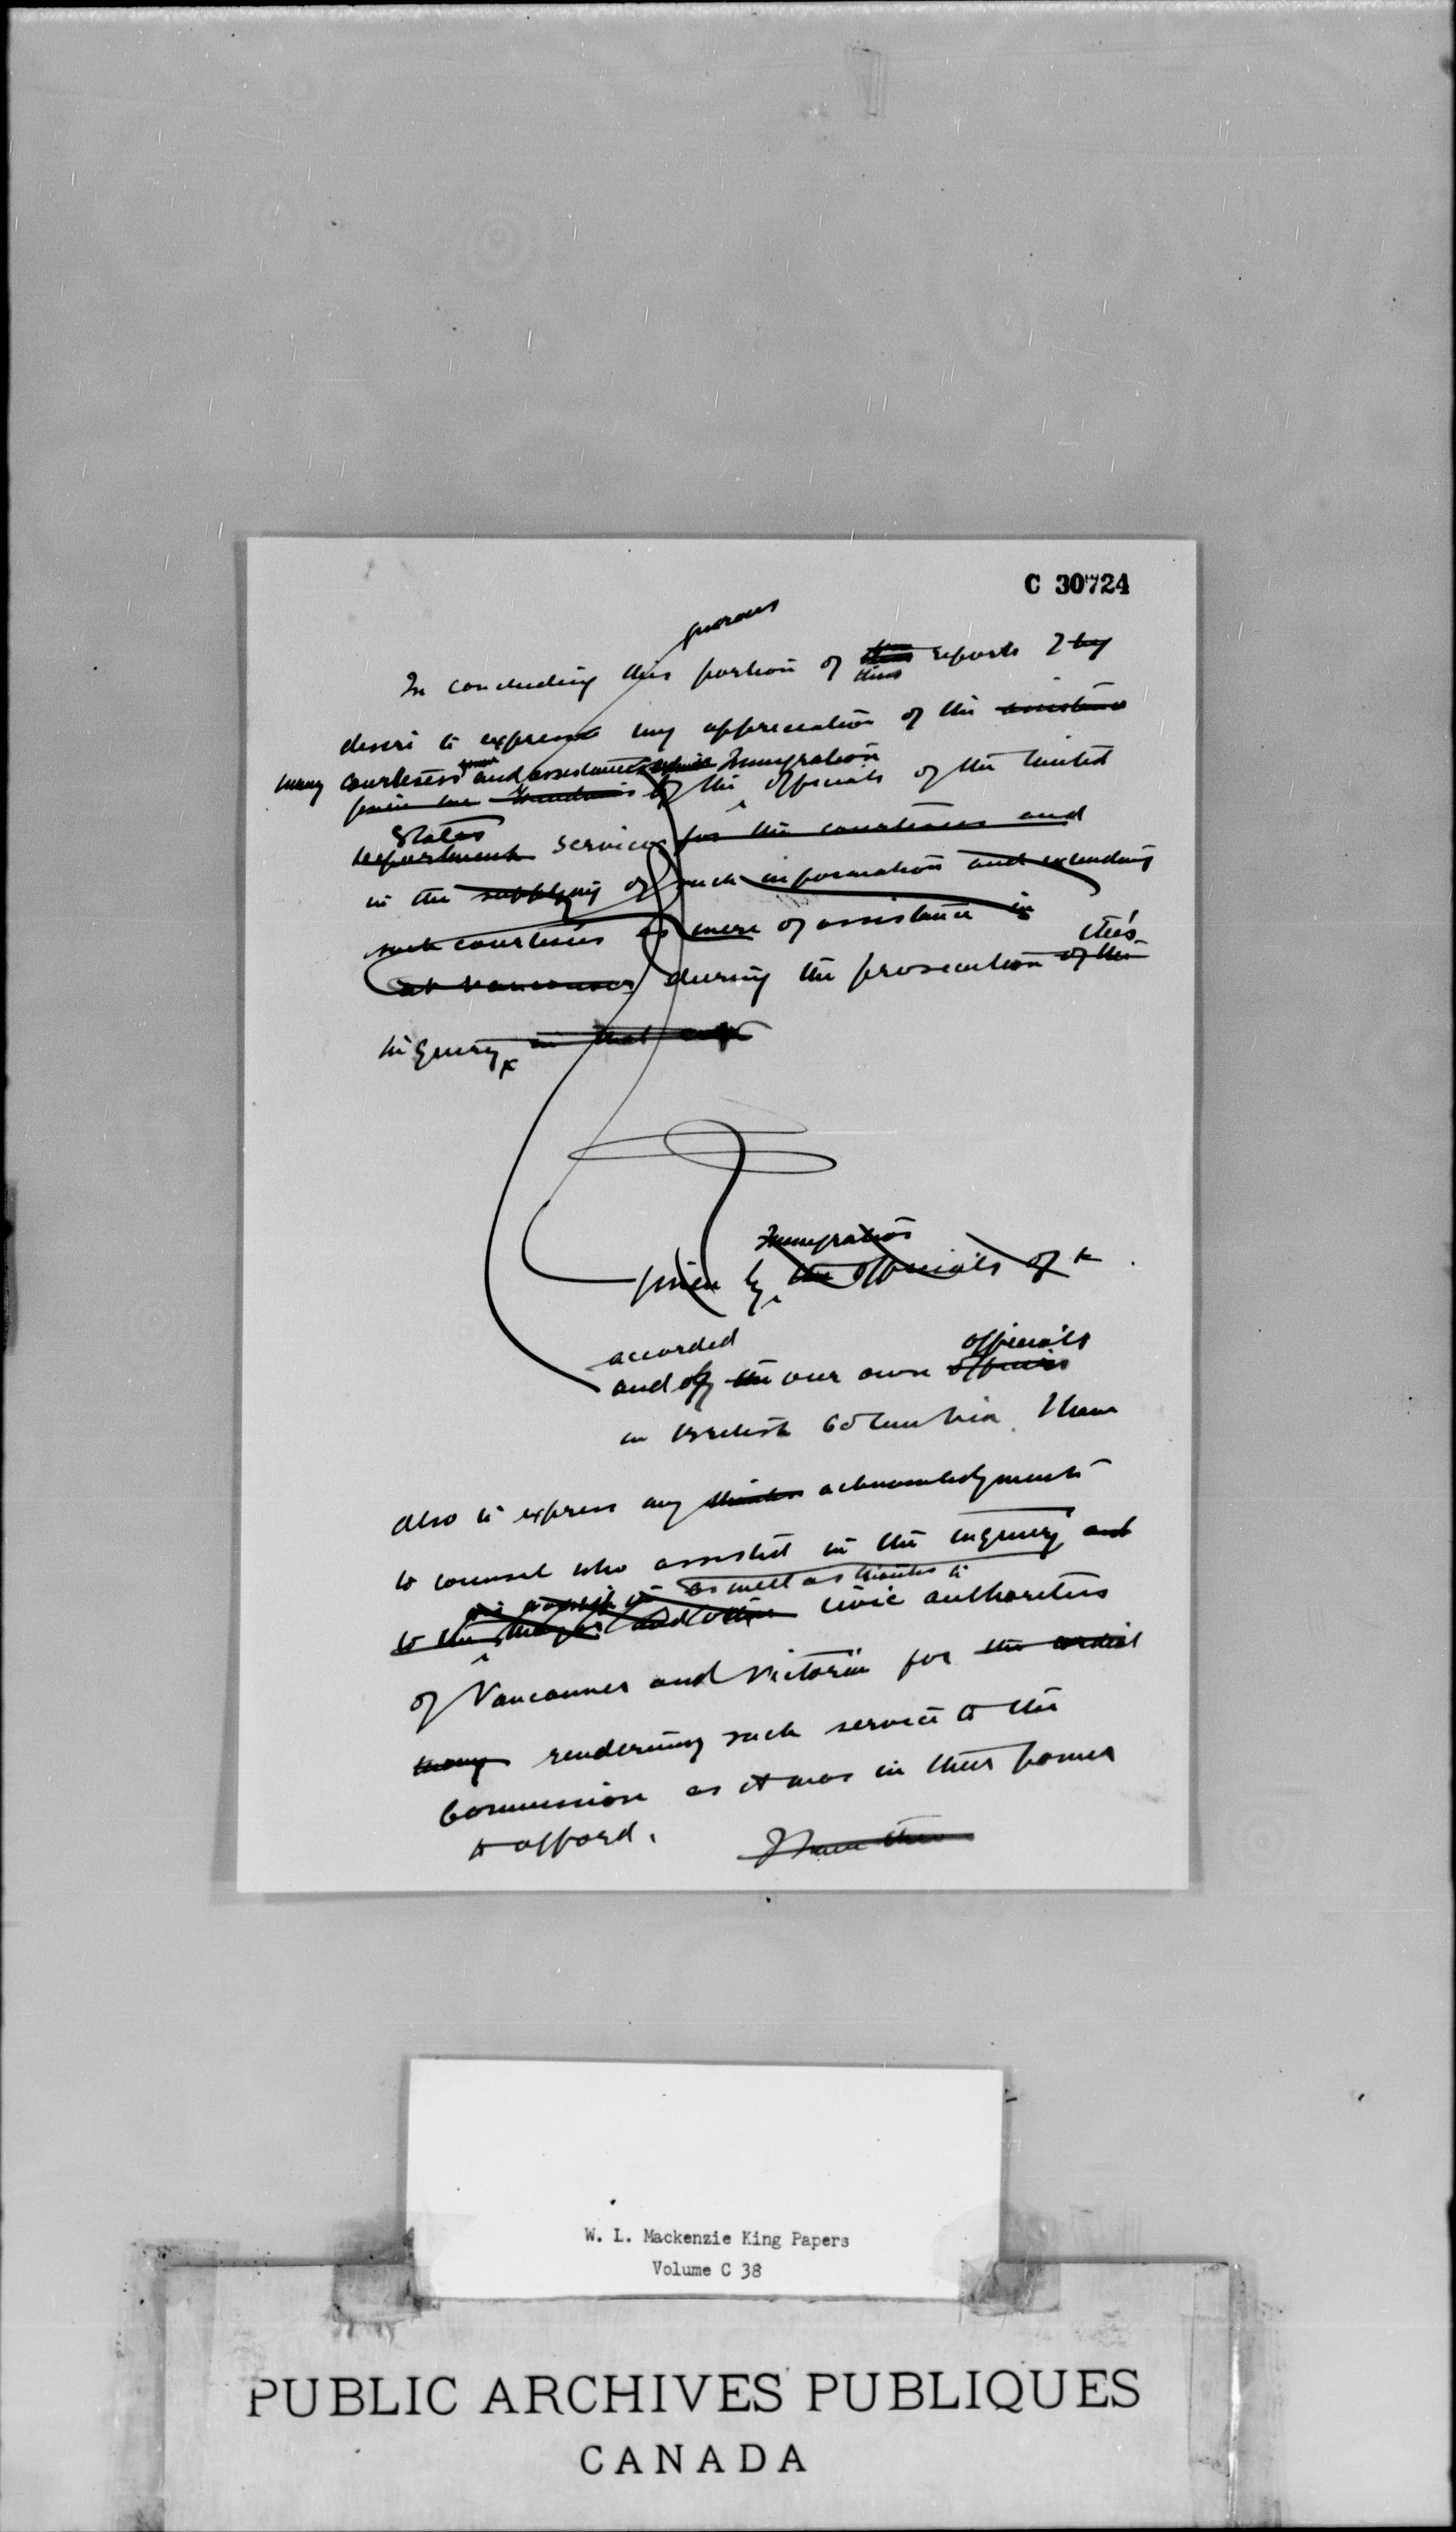 C 30724
In concluding this portion of this reports I
desire to express my appreciation of the assistance
many courtesies and assistance Immigration
of the officials of the United
States
Department services for the courtesies and
in the supplying of such information and extending
such courtesies as were of assistance in
this
at Vancouver during the prosecution of the
inquiry in that
Immigration
given by the officials of t
accorded officials
and by the our own officers
in British Columbia. I have
also to express my thanks acknowledgments
to counsel who assisted in the inquiry and
as well as thanks to
to the mayor and civic authorities
of Vancouver and Victoria for the cordial
many rendering such service to the
Commission as it was in their power
to afford. I have
W. L. Mackenzie King Papers
Volume C 38
PUBLIC ARCHIVES PUBLIQUES
CANADA